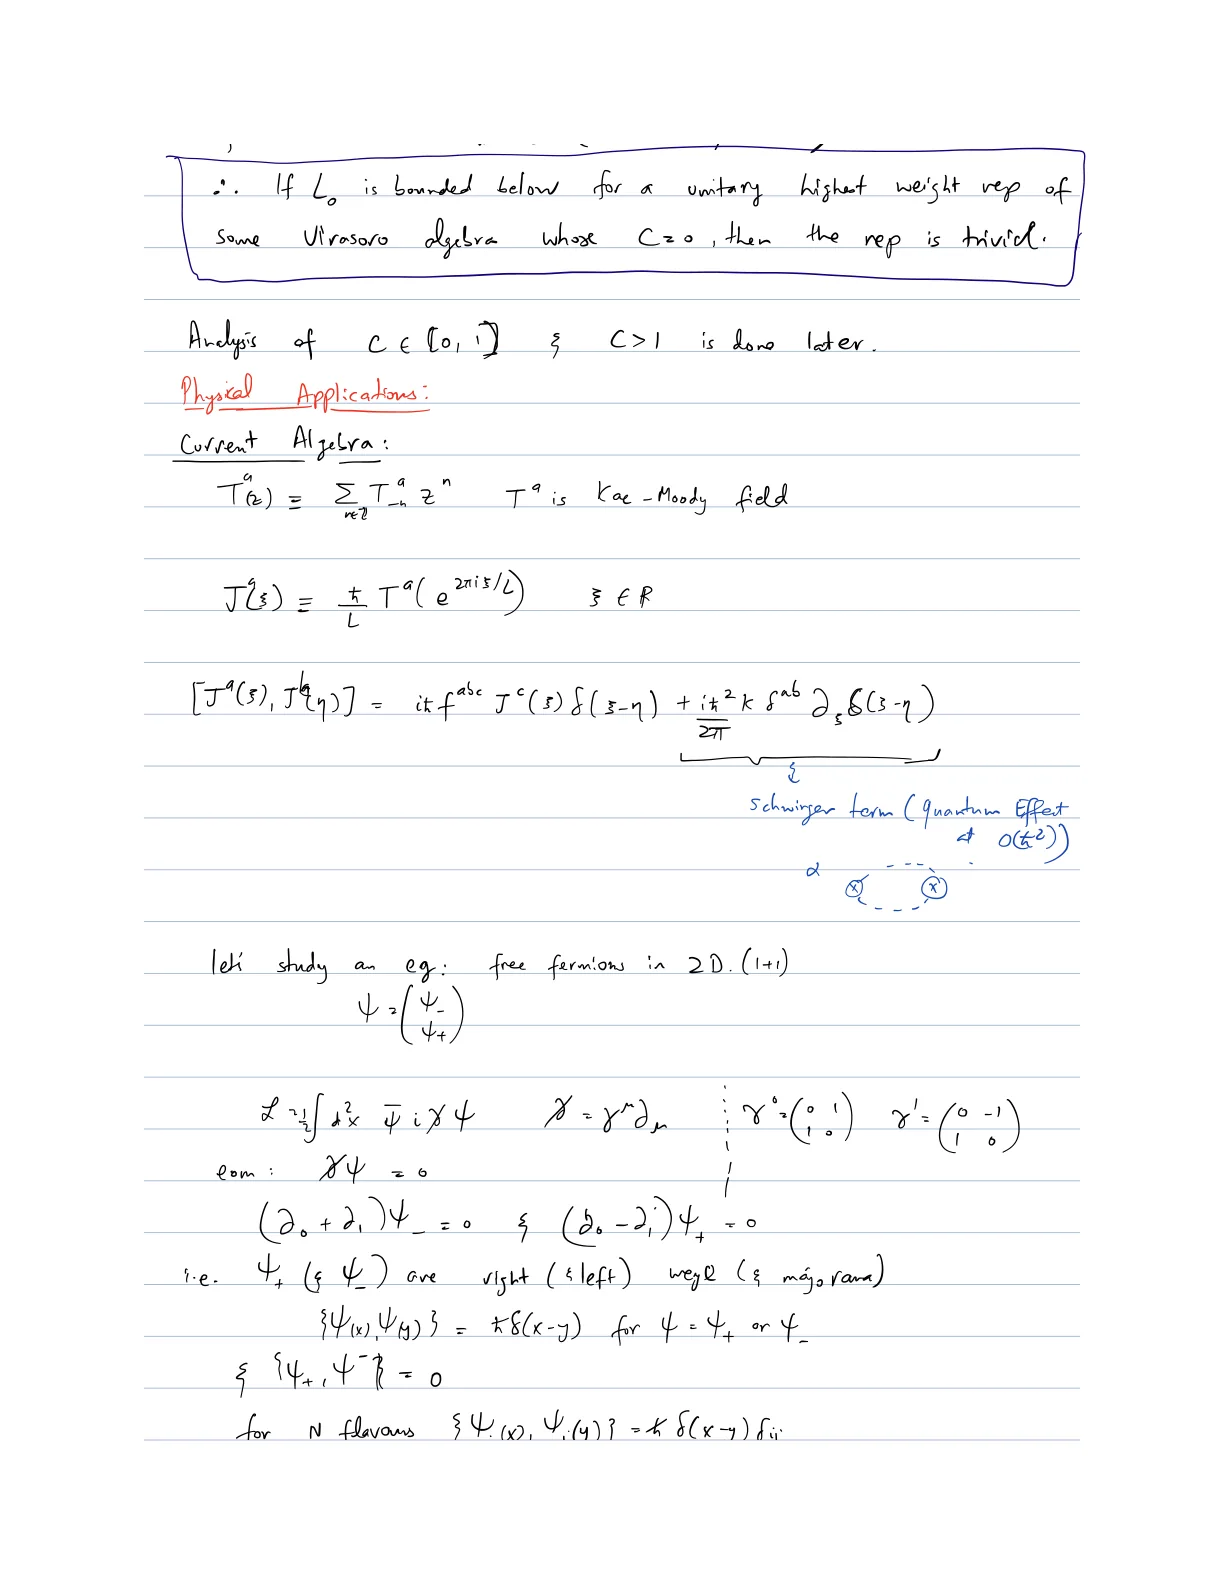 ∴ If L₀ is bounded below for a unitary highest weight rep of
some Virasoro algebra whose C=0, then the rep is trivial.
Analysis of C ∈ [0, 1] & C>1 is done later.
Physical Applications:
Current Algebra:
Tᵃ(z) ≡ Σ_{n∈ℤ} T₋ₙᵃ zⁿ Tᵃ is Kac-Moody field
Jᵃ(ξ) ≡ ħ/L Tᵃ(e^{2πiξ/L}) ξ ∈ ℝ
[Jᵃ(ξ), Jᵇ(η)] = iħ f^{abc} Jᶜ(ξ) δ(ξ-η) + iħ²/2π k δ^{ab} ∂_ξ δ(ξ-η)
Schwinger term (Quantum Effect
at O(ħ²))
α x x
let's study an eg: free fermions in 2D. (1+1)
ψ = (ψ₋ ψ₊)
ℒ = 1/2 ∫ d²x ψ̄ i ∂̸ ψ ∂̸ = γ^μ ∂_μ γ⁰ = (0 1 1 0) γ¹ = (0 -1 1 0)
eom: ∂̸ψ = 0
(∂₀ + ∂₁)ψ₋ = 0 & (∂₀ - ∂₁)ψ₊ = 0
i.e. ψ₊ (& ψ₋) are right (& left) weyl (& majorana)
{ψ(x), ψ(y)} = ħδ(x-y) for ψ = ψ₊ or ψ₋
& {ψ₊, ψ⁻} = 0
for N flavours {ψᵢ(x), ψⱼ(y)} = ħ δ(x-y) δᵢⱼ